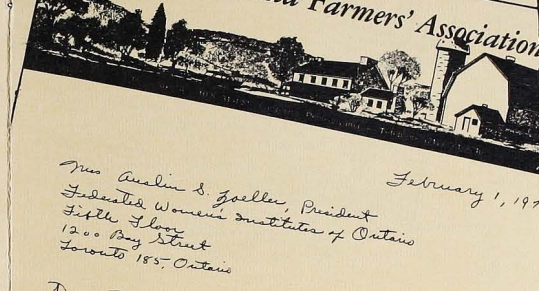 Farmers' Association
February 1, 197
Mrs Austin S. Zoeller, President
Federated Women's Institutes of Ontario
Fifth Floor
1200 Bay Street
Toronto 185, Ontario